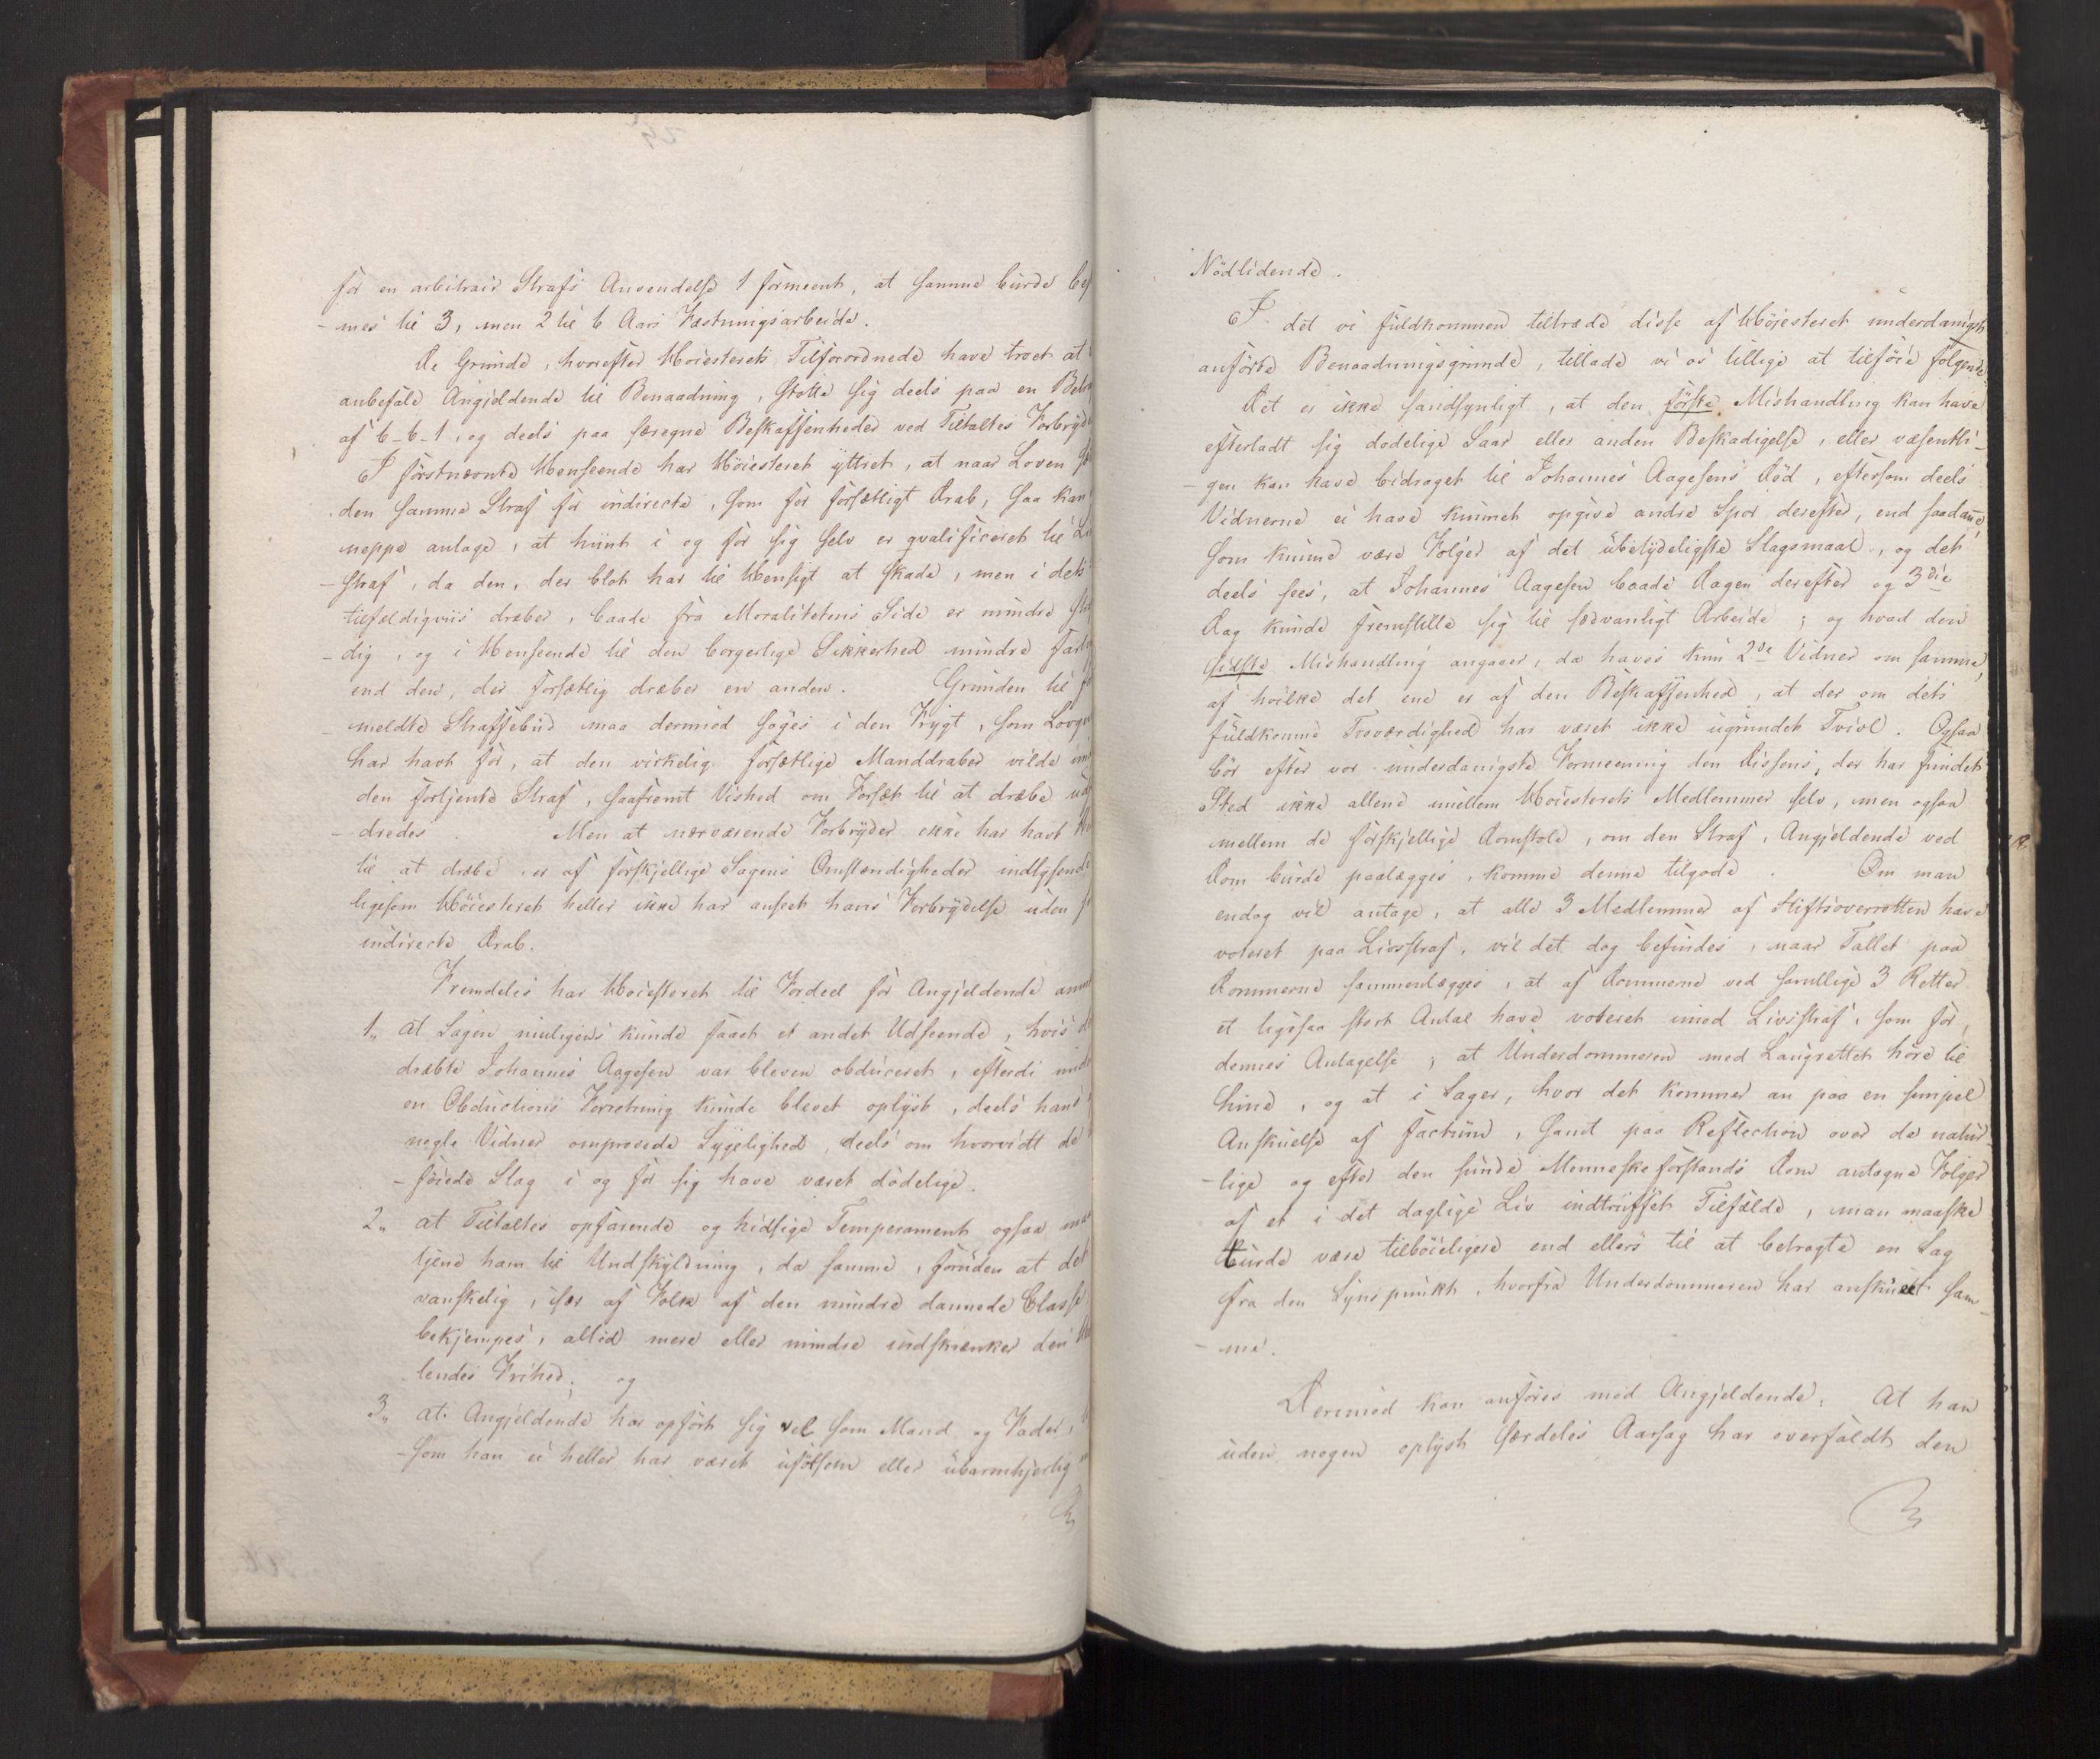 for en arbitrair Strafs Anvendelse 1 formeent, at samme burde bes
-mes til 3, men 2 til 6 Aars Fæstningsarbeide.
De Grunde, hvorefter Høiesterets Tilforordnede have troet at
anbefale Angjeldende til Benaadning, støtte sig deels paa en Betra
af 6-6-1, og deels paa særegne Beskaffenheder ved Tiltaltes Forbryde
I førstnævnte Henseende har Høiesteret yttret, at naar Loven
den samme Straf for indirecte, som for forsætligt Drab, saa kan
neppe antage, at hiint i og for sig selv er qvalificeret til Li
-straf, da den, der blot har til Hensigt at skade, men i dets
tilfældigviis dræber, baade fra Moralitetens Side er mindre
-dig, og i Henseende til den borgerlige Sikkerhed mindre farli
end den, der forsætlig dræber en anden. Grunden til
-meldte Straffebud maa derimod søges i den Frygt, som Lovgi
har havt for, at den virkelig forsætlige Manddraber vilde
den fortjente Straf, saafremt Vished om Forsæt til at dræbe
-dredes. Men at nærværende Forbryder ikke har havt
til at dræbe, er af forskjellige Sagens Omstændigheder indlysende
ligesom Høiesteret heller ikke har anseet hans Forbrydelse uden
indirecte Drab.
Fremdeles har Høiesteret til Fordeel for Angjeldende
1., at Sagen muligens kunde faaet et andet Udseende, hvis
dræbte Johannes Aagesen var bleven obduceret, efterdi
en Obductions Forretning kunde blevet oplyst, deels hans
nogle Vidner omprovede Sygelighed, deels om hvorvidt de
-føiede Slag i og for sig have været dødelige.
2., at Tiltaltes opfarende og hidsige Temperament ogsaa
tjene ham til Undskyldning, da samme, foruden at det
vanskelig, især af Folk af den mindre dannede Classe
bekjempes, altid mere eller mindre indskrænker den
lendes Frihed; og
3., at Angjeldende har opført sig vel som Mand og Fader,
-som han ei heller har været ufølsom eller ubarmhjertig
Nødlidende.
I det vi fuldkommen tiltræde disse af Høiesteret underdanigst
anførte Benaadningsgrunde, tillade vi os tillige at tilføie følgende
Det er ikke sandsynligt, at den første Mishandling kan have
efterladt sig dødelige Saar eller anden Beskadigelse, eller væsentli-
-gen kan have bidraget til Johannes Aagesens Død, eftersom deels
Vidnerne ei have kunnet opgive andre Spor derefter, end saadanne
som kunne være Følger af det ubetydeligste Slagsmaal, og det
deels sees, at Johannes Aagesen baade Dagen derefter og 3die
Dag kunde fremstille sig til sædvanligt Arbeide; og hvad den
sidste Mishandling angaaer, da haves kun 2de Vidner om samme,
af hvilke det ene er af den Beskaffenhed, at der om dets
fuldkomne Troværdighed har været ikke ugrundet Tvivl. Ogsaa
bør efter vor underdanigste Formeening den Dissens, der har fundet
Sted ikke allene imellem Høiesterets Medlemmer selv, men ogsaa
mellem de forskjellige Domstole, om den Straf, Angjeldende ved
Dom burde paalægges, komme denne tilgode. Om man
endog vil antage, at alle 3 Medlemmer af Stiftsoverretten have
voteret paa Livsstraf, vil det dog befindes, naar Tallet paa
Dommerne sammenlægges, at af Dommerne ved samtlige 3 Retter
et ligesaa stort Antal have voteret imod Livsstraf, som for
dennes Antagelse; at Underdommeren med Laugrettet høre til
hine, og at i Sager, hvor det kommer an paa en simpel
Anskuelse af Factum, samt paa Reflection over de natur-
-lige og efter den sunde Menneskeforstands Dom antagne Følger
af et i det daglige Liv indtruffet Tilfælde, man maaske
burde være tilbøieligere end ellers til at betragte en Sag
fra den Synspunkt, hvorfra Underdommeren har anskuet sam-
-me.
Derimod kan anføres mod Angjeldende: At han
uden nogen oplyst særdeles Aarsag har overfaldt den